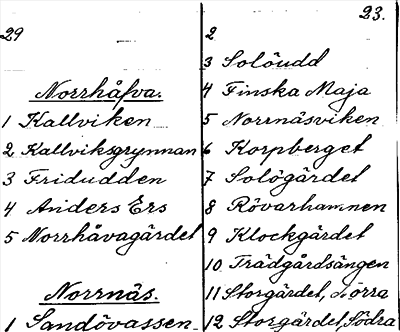 29
Norrhåfva.
1 Kallviken
2 Kallviksgrynnan
3 Fridudden
4 Anders Ers
5 Norrhåvagärdet
Norrnäs.
1 Sandövassen
23.
2
3 Solöudd
4 Finska Maja
5 Norrnäsviken
6 Korpberget
7 Sologärdet
8 Rövarhamnen
9 Klockgärdet
10. Trädgårdsängen
11 Storgärdet, Norra
12 Storgärdet, Södra